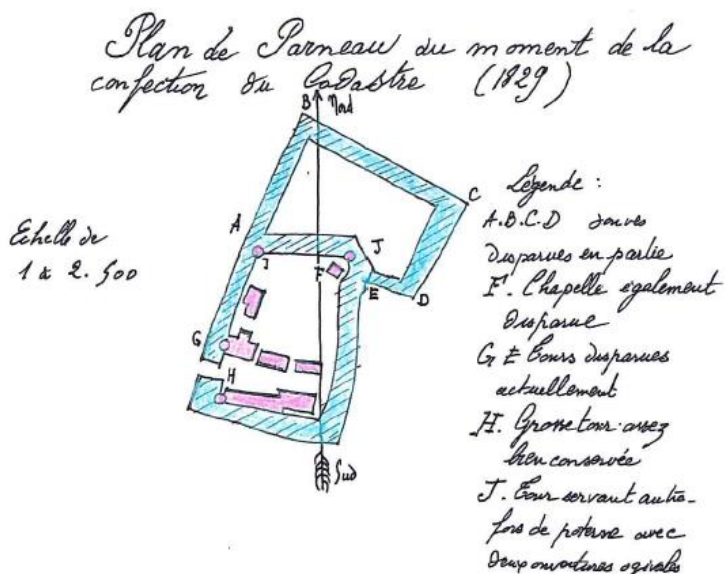 Plan de Parneau au moment de la
confection du Cadastre (1829)
B Nord
C
A
Echelle de
1 à 2.500
I
J
F
E
D
G
H
Sud
Légende :
A.B.C.D douves
disparues en partie
F. Chapelle également
disparue
G E Tours disparues
actuellement
H. Grosse tour assez
bien conservée
J. Tour servant autre-
fois de poterne avec
deux ouvertures ogivales